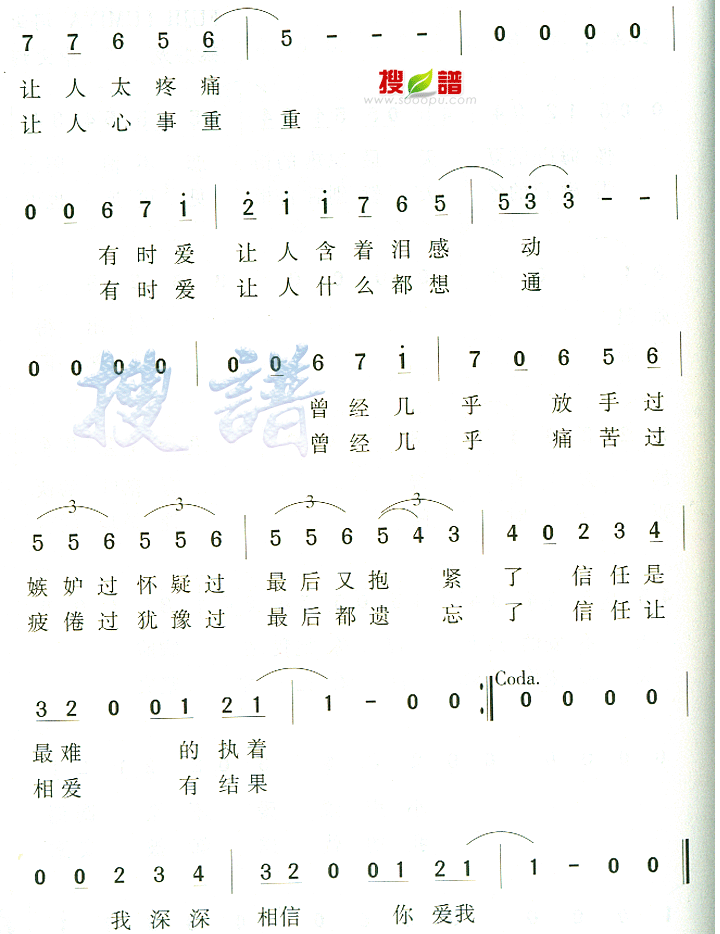 7 7 6 5 6 | 5 - - - | 0 0 0 0 |
让人太疼痛
搜谱
www.sooopu.com
让人心事重 重
0 0 6 7 1 | 2 1 1 7 6 5 | 5 3 3 - - |
有时爱 让人含着泪感 动
有时爱 让人什么都想 通
0 0 0 0 | 0 0 6 7 1 | 7 0 6 5 6 |
搜譜
曾经几 乎 放手过
曾经几 乎 痛苦过
3 3 3 3
5 5 6 5 5 6 | 5 5 6 5 4 3 | 4 0 2 3 4 |
嫉妒过怀疑过 最后又抱 紧 了 信任是
疲倦过犹豫过 最后都遗 忘 了 信任让
Coda.
3 2 0 0 1 2 1 | 1 - 0 0 :| 0 0 0 0 |
最难 的执着
相爱 有结果
0 0 2 3 4 | 3 2 0 0 1 2 1 | 1 - 0 0 ‖
我深深 相信 你 爱我